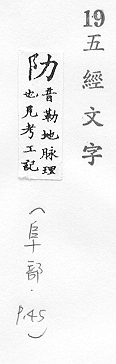 19 五經文字
阞
音勒地脉理
也見考工記
(阜部. P.45)